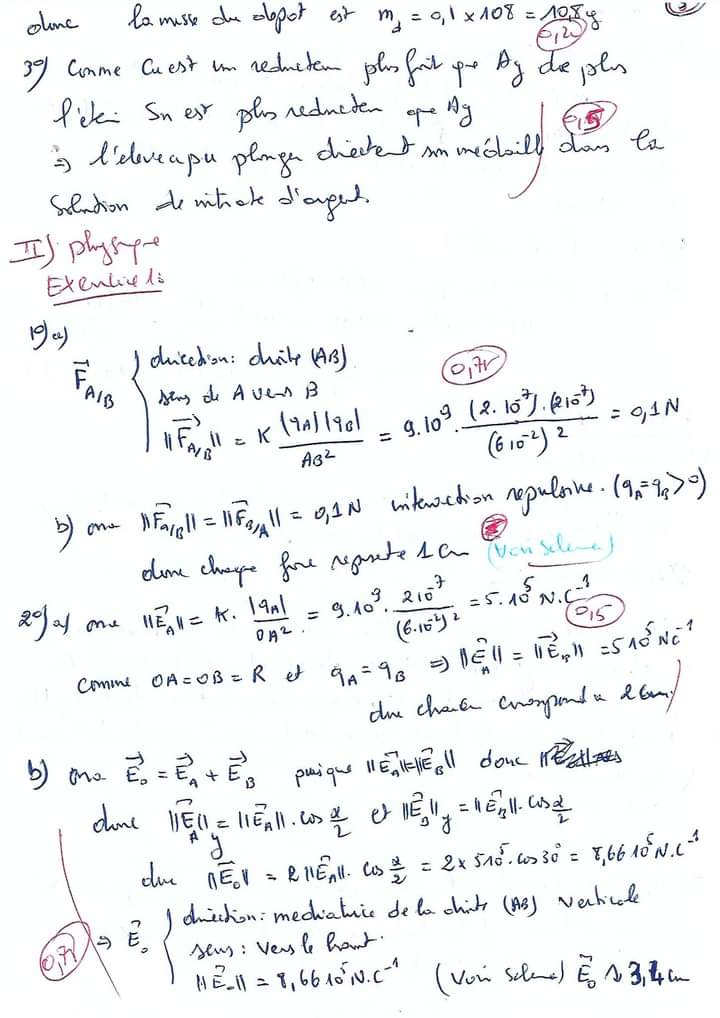 donc la masse du depot est m_d = 0,1 x 108 = 10,8g
3°) Comme Cu est un reducteur plus fort que Ag de plus
Sn est plus reducteur que Ag
⇒ l'eleve a pu plonger directent son médaille dans la
solution de nitrate d'argent.
II) physique
Exercice 1:
1°) a)
F⃗_{A/B} { direction: droite (AB).
0,75
sens de A vers B
||F⃗_{A/B}|| = K |q_A||q_B| / AB² = 9.10⁹. (2.10⁻⁷).(2 10⁻⁷) / (6 10⁻²)² = 0,1 N
b) ona ||F⃗_{A/B}|| = ||F⃗_{B/A}|| = 0,1 N interaction repulsive. (q_A = q_B > 0)
donc chaque force represente 1 cm (voir scheme)
2°) a) ona ||E⃗_A|| = K. |q_A| / OA² = 9.10⁹. 2 10⁻⁷ / (6.10⁻²)² = 5.10⁵ N.C⁻¹
0,5
Comme OA = OB = R et q_A = q_B ⇒ ||E⃗_A|| = ||E⃗_B|| = 5 10⁵ N C⁻¹
correspond a 2 cm.
b) ona E⃗_o = E⃗_A + E⃗_B puisque ||E⃗_A|| = ||E⃗_B|| donc
donc ||E⃗_A||_y = ||E⃗_A||. cos α/2 et ||E⃗_B||_y = ||E⃗_B||. cos α/2
donc ||E⃗_o|| = 2 ||E⃗_A||. cos α/2 = 2 x 5 10⁵. cos 30° = 8,66 10⁵ N.C⁻¹
⇒ E⃗_o { direction: mediatrice de la droite (AB) verticale
0,75
sens: vers le haut.
||E⃗_o|| = 8,66 10⁵ N.C⁻¹ (voir scheme) E⃗_o 3,4 cm